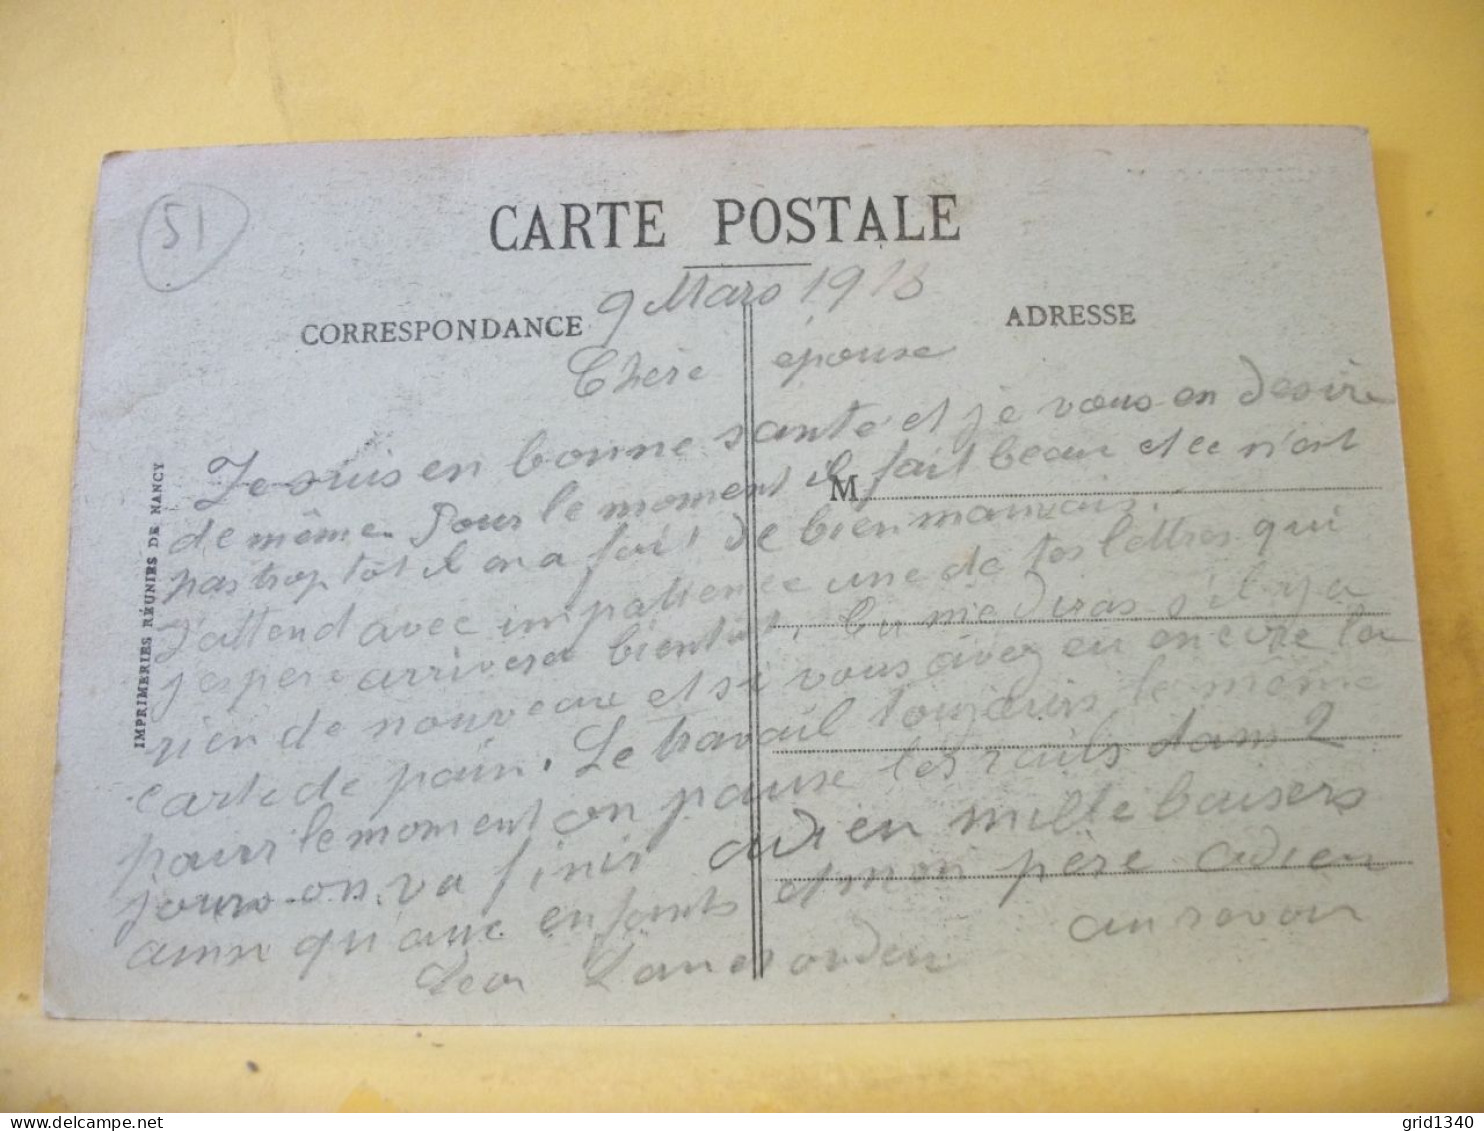 51
CARTE POSTALE
CORRESPONDANCE
ADRESSE
9 Mars 1918
Chère épouse
Je suis en bonne santé et je vous en désire
de même. Pour le moment il fait beau et ce n'est
M
pas trop tôt il en a fait de bien mauvais.
J'attend avec impatience une de tes lettres qui
j'espère arrivera bientôt. Tu me diras s'il y a
rien de nouveau et si vous avez eu encore la
carte de pain. Le travail toujours le même
pour le moment on pause les rails dans 2
jours on va finir adieu mille baisers
ainsi qu'aux enfants et mon père adieu
au revoir
IMPRIMERIES RÉUNIES DE NANCY
delcampe.net
grid1340